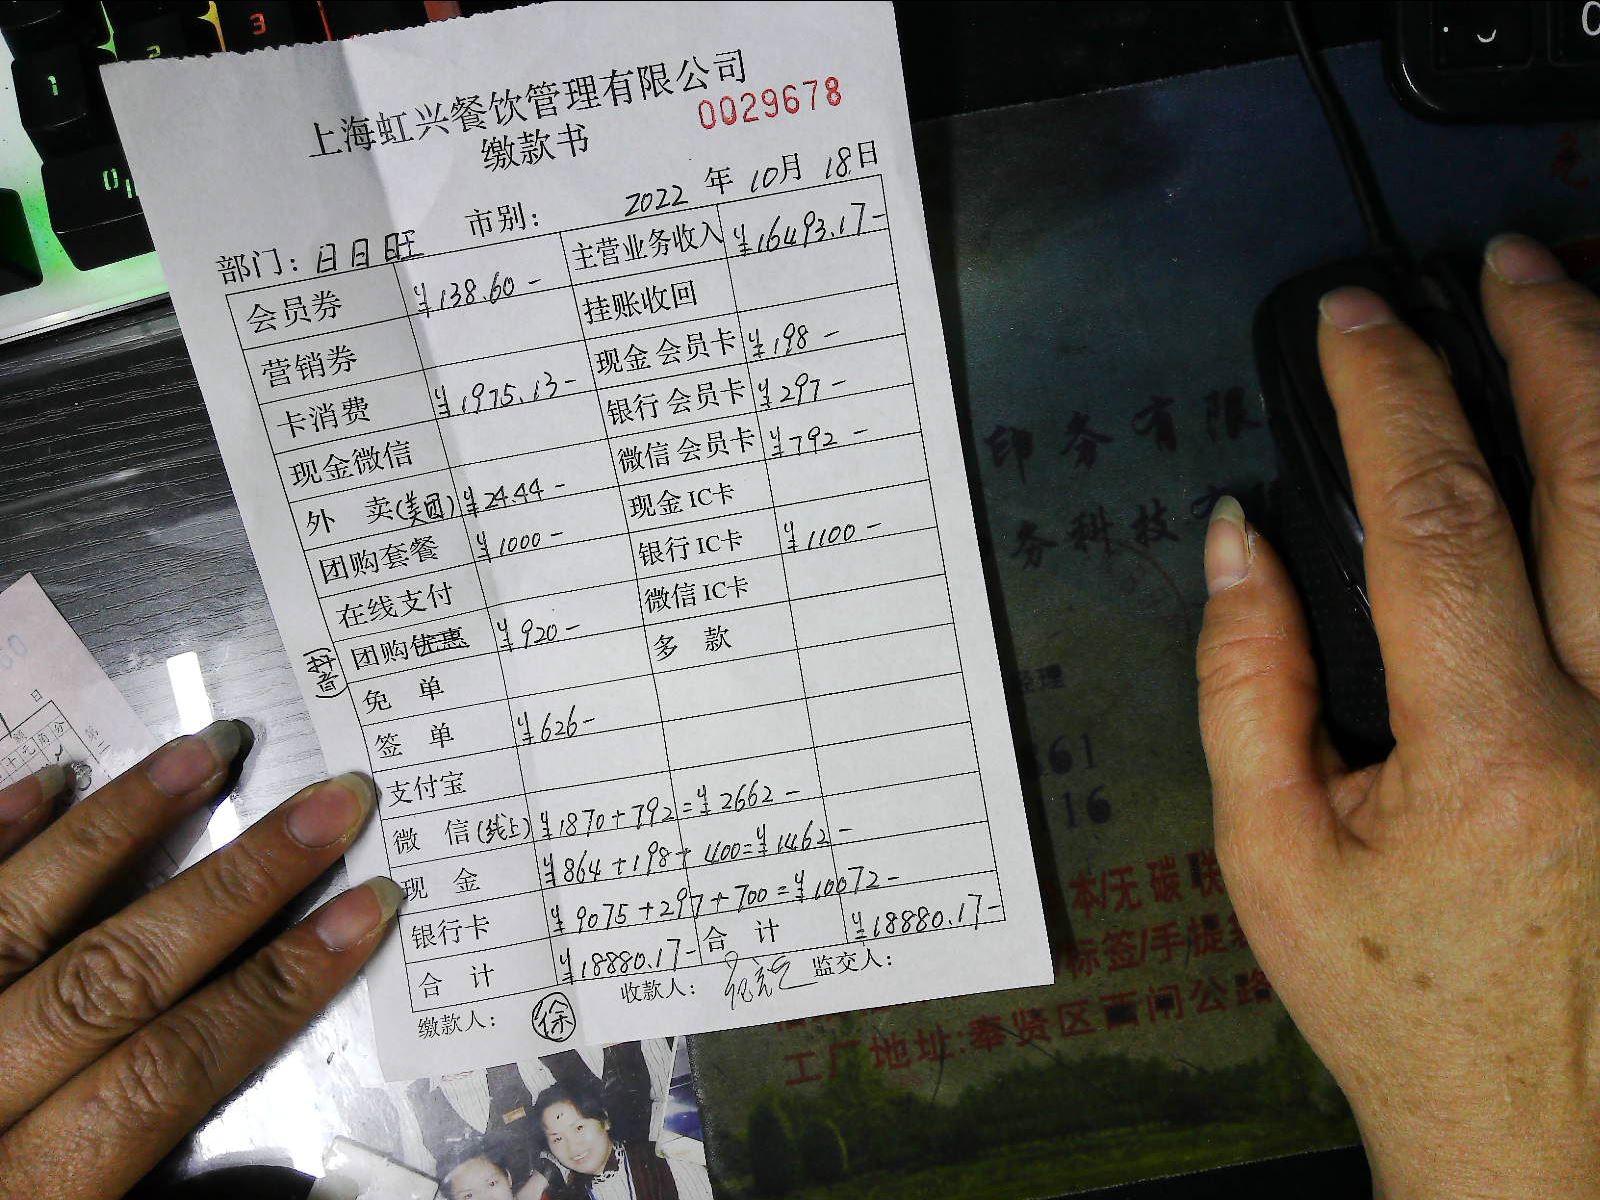 上海虹兴餐饮管理有限公司
0029678
缴款书
部门: 日日旺 市别: 2022年10月18日
会员券 ¥138.60- 主营业务收入 ¥16493.17-
营销券 挂账收回
卡消费 ¥1975.13- 现金会员卡 ¥198-
现金微信 银行会员卡 ¥297-
外卖(美团) ¥24.44- 微信会员卡 ¥792-
团购套餐 ¥1000- 现金IC卡
在线支付 银行IC卡 ¥1100-
团购优惠 (抖音) ¥920- 微信IC卡
免单 多款
签单 ¥626-
支付宝
微信(线上) ¥1870+792=¥2662-
现金 ¥864+198+400=¥1462-
银行卡 ¥9075+297+700=¥10072-
合计 ¥18880.17- 合计 ¥18880.17-
缴款人: 徐 收款人: 监交人:
印务有限
务科技有
经理
861
16
本/无碳联
标签/手提
工厂地址:奉贤区 闸公路
日
元角分
1
2
3